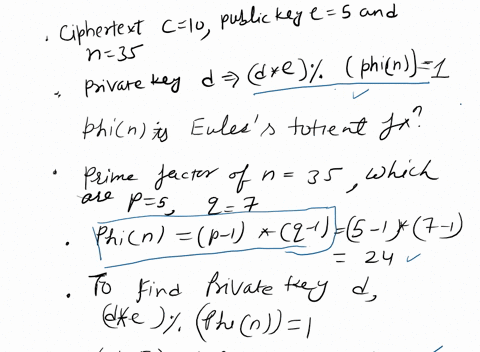 . Ciphertext C=10, public key e=5 and
n=35
. Private key d ⇒ (d*e)% (phi(n))=1
phi(n) is Eules's totient fx?
. Prime factor of n = 35, which
are p=5, q=7
. Phi(n) = (p-1) * (q-1) = (5-1)*(7-1)
= 24
. To find Private key d,
(d*e)% (Phi(n))=1